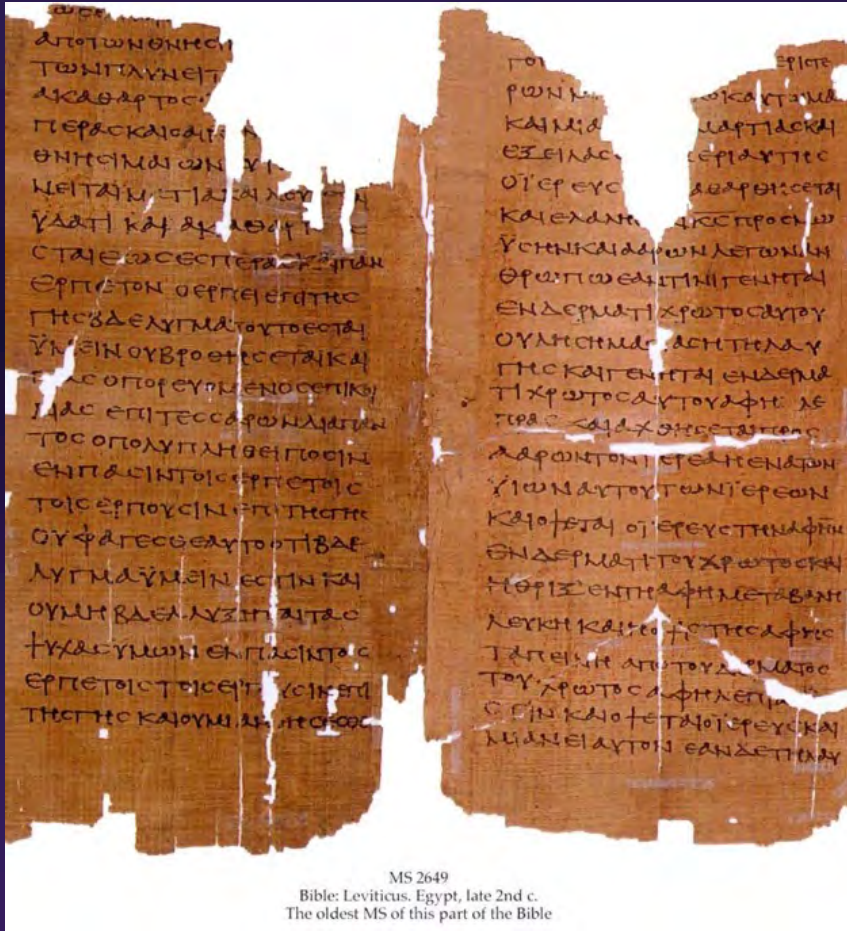 ΑΠΟΤΩΝΘΝΗϹΙ
ΤΩΝΠΛΥΝΕΙΤ
ΑΚΑΘΑΡΤΟϹ
ΠΕΡΑϹΚΑΙΟΑΙΡ
ΘΝΗϹΙΜΑΙΩΝ
ΝΕΙΤΑΪΜΑΤΙΑΚΑΙΛΟΥ
ΫΔΑΤΙ ΚΑΙ ΑΚΑΘΑΡΤ
ϹΤΑΙΕΩϹΕϹΠΕΡΑϹΚΑΙΠΑΝ
ΕΡΠΕΤΟΝ ΟΕΡΠΕΙΕΠΙΤΗϹ
ΓΗϹΒΔΕΛΥΓΜΑΤΟΥΤΟΕϹΤΑΙ
ΫΜΕΙΝΟΥΒΡΩΘΗϹΕΤΑΙΚΑΙ
ΠΑϹΟΠΟΡΕΥΟΜΕΝΟϹΕΠΙΚΟΙ
ΛΙΑϹ ΕΠΙΤΕϹϹΑΡΩΝΔΙΑΠΑΝ
ΤΟϹΟΠΟΛΥΠΛΗΘΕΙΠΟϹΙΝ
ΕΝΠΑϹΙΝΤΟΙϹΕΡΠΕΤΟΙϹ
ΤΟΙϹΕΡΠΟΥϹΙΝΕΠΙΤΗϹΓΗϹ
ΟΥΦΑΓΕϹΘΕΑΥΤΟΟΤΙΒΔΕ
ΛΥΓΜΑΫΜΕΙΝ ΕϹΤΙΝ ΚΑΙ
ΟΥΜΗΒΔΕΛΛΥΞΗΤΑΙΤΑϹ
ΨΥΧΑϹΫΜΩΝΕΝΠΑϹΙΝΤΟΙϹ
ΕΡΠΕΤΟΙϹΤΟΙϹΕΡΠΟΥϹΙΝΕΠΙ
ΤΗϹΓΗϹ ΚΑΙΟΥΜΙΑΝΘΗϹΕϹΘΕ
ΓΟΙ ΕΡΙϹΤΕ
ΡΩΝ ΚΑΥΤΩΜΑ
ΚΑΙΜΙΑ ΜΑΡΤΙΑϹΚΑΙ
ΕΞΕΙΛΑϹ ΕΡΙΑΥΤΗϹ
ΟΪΕΡΕΥϹ ΑΘΑΡΘΗϹΕΤΑΙ
ΚΑΙΕΛΑΛΗ ΚϹΠΡΟϹΜΩ
ΫϹΗΝΚΑΙΑΑΡΩΝΛΕΓΩΝΑΝ
ΘΡΩΠΩΕΑΝΤΙΝΙΓΕΝΗΤΑΙ
ΕΝΔΕΡΜΑΤΙΧΡΩΤΟϹΑΥΤΟΥ
ΟΥΛΗϹΗΜΑϹΙΑϹΗΤΗΛΑΥ
ΓΗϹΚΑΙΓΕΝΗΤΑΙ ΕΝΔΕΡΜΑ
ΤΙΧΡΩΤΟϹΑΥΤΟΥΑΦΗ ΛΕ
ΠΡΑϹ ΚΑΙΑΧΘΗϹΕΤΑΙΠΡΟϹ
ΑΑΡΩΝΤΟΝΪΕΡΕΑΗΕΝΑΤΩΝ
ΫΙΩΝΑΥΤΟΥΤΩΝΪΕΡΕΩΝ
ΚΑΙΟΨΕΤΑΙ ΟΪΕΡΕΥϹΤΗΝΑΦΗΝ
ΕΝΔΕΡΜΑΤΙΤΟΥΧΡΩΤΟϹΚΑΙ
ΗΘΡΙΞΕΝΤΗΑΦΗΜΕΤΑΒΑΛΗ
ΛΕΥΚΗ ΚΑΙΗΟΨΙϹΤΗϹΑΦΗϹ
ΤΑΠΕΙΝΗ ΑΠΟΤΟΥΔΕΡΜΑΤΟϹ
ΤΟΥΧΡΩΤΟϹΑΦΗΛΕΠΡΑ
ϹΤΙΝ ΚΑΙΟΨΕΤΑΙΟΪΕΡΕΥϹΚΑΙ
ΜΙΑΝΕΙΑΥΤΟΝ ΕΑΝΔΕΤΗΛΑΥ
MS 2649
Bible: Leviticus. Egypt, late 2nd c.
The oldest MS of this part of the Bible